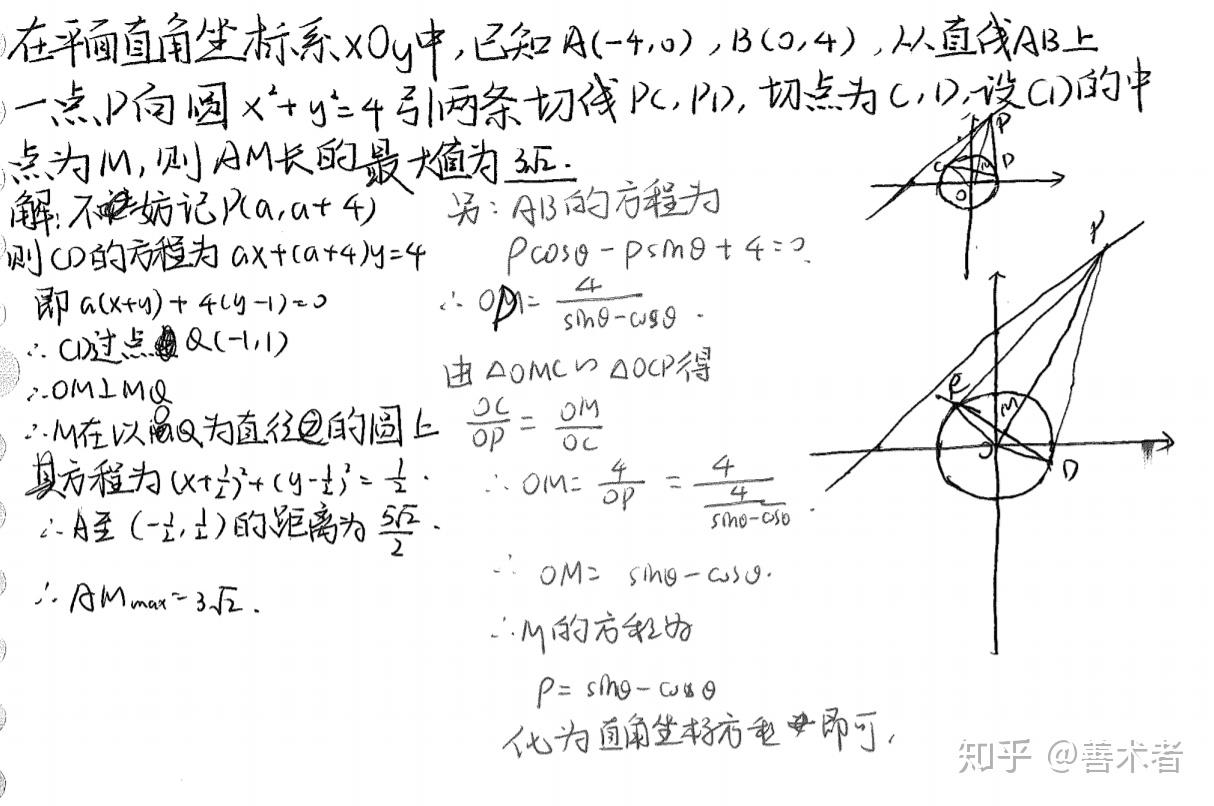 在平面直角坐标系xOy中,已知A(-4,0),B(0,4),从直线AB上
一点P向圆x²+y²=4引两条切线PC,PD,切点为C,D,设CD的中
点为M,则AM长的最大值为3√2.
解:不妨记P(a,a+4)
则CD的方程为ax+(a+4)y=4
即a(x+y)+4(y-1)=0
∴CD过点Q(-1,1)
∴OM⊥MQ
∴M在以OQ为直径的圆上
其方程为(x+1/2)²+(y-1/2)²=1/2.
∴A至(-1/2,1/2)的距离为5√2/2.
∴AMmax=3√2.
另:AB的方程为
ρcosθ-ρsinθ+4=0.
∴OP=4/(sinθ-cosθ).
由△OMC∽△OCP得
OC/OP=OM/OC
∴OM=4/OP=4/(4/(sinθ-cosθ)).
∴OM=sinθ-cosθ.
∴M的方程为
ρ=sinθ-cosθ
化为直角坐标方程即可.
P
C
M
D
O
P
C
M
O
D
知乎 @善术者